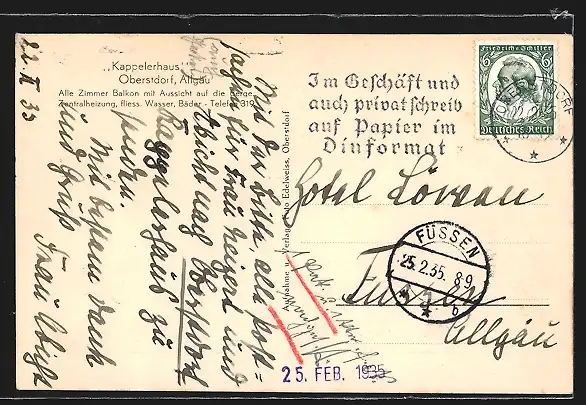 „Kappelerhaus"
Oberstdorf, Allgäu
Alle Zimmer Balkon mit Aussicht auf die Berge
Zentralheizung, fliess. Wasser, Bäder - Telefon 319
22. II 35
Mit der Bitte alle Post-
sachen für Frau Geiger und
nach Oberstdorf
Kappelerhaus zu
senden.
Mit bestem Dank
und Gruß
Frau
Aufnahme u. Verlag Foto Edelweiss, Oberstdorf
Im Geschäft und
auch privat schreib
auf Papier im
Dinformat
Friedrich v. Schiller
6
Deutsches Reich
OBERSTDORF
Hotel Löwen
Füssen
Allgäu
FÜSSEN
25.2.35. 8-9
b
25. FEB. 1935